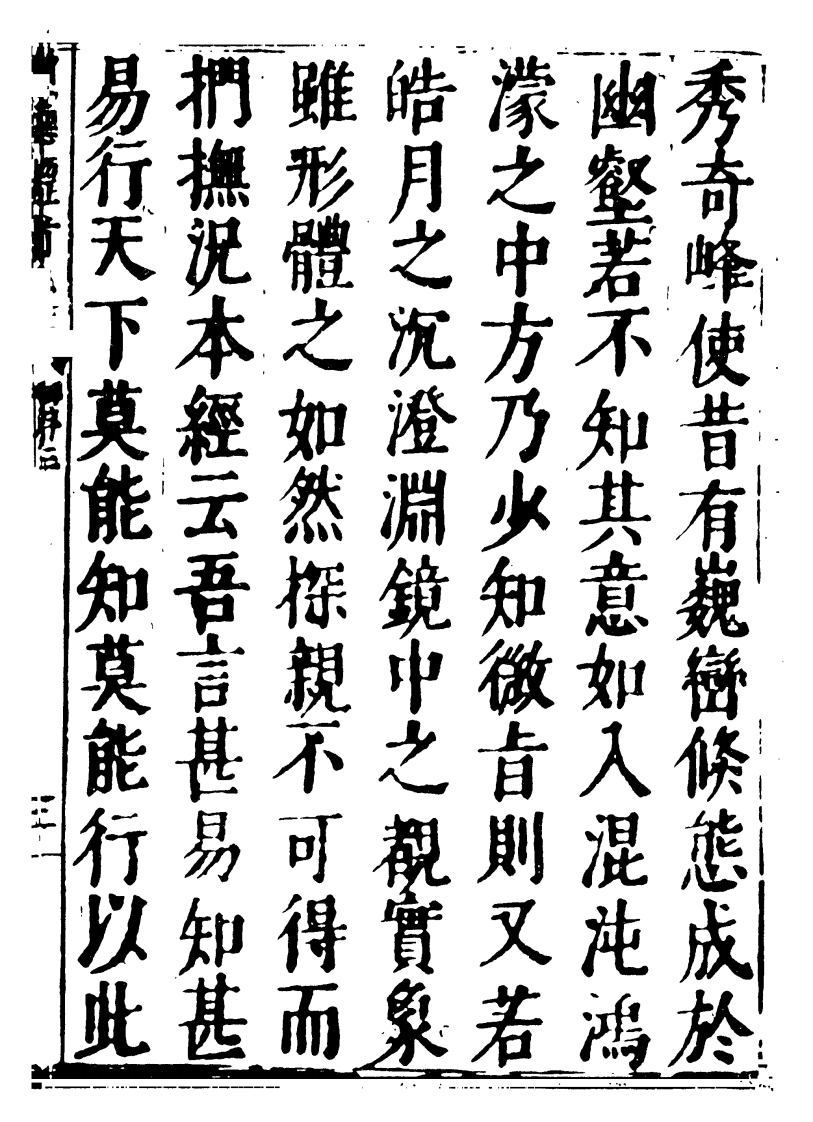 秀奇峰使昔有巍巒倏態成於
幽壑若不知其意如入混沌鴻
濛之中方乃少知微旨則又若
皓月之沉澄淵鏡中之觀實象
雖形體之如然探親不可得而
捫撫況本經云吾言甚易知甚
易行天下莫能知莫能行以此